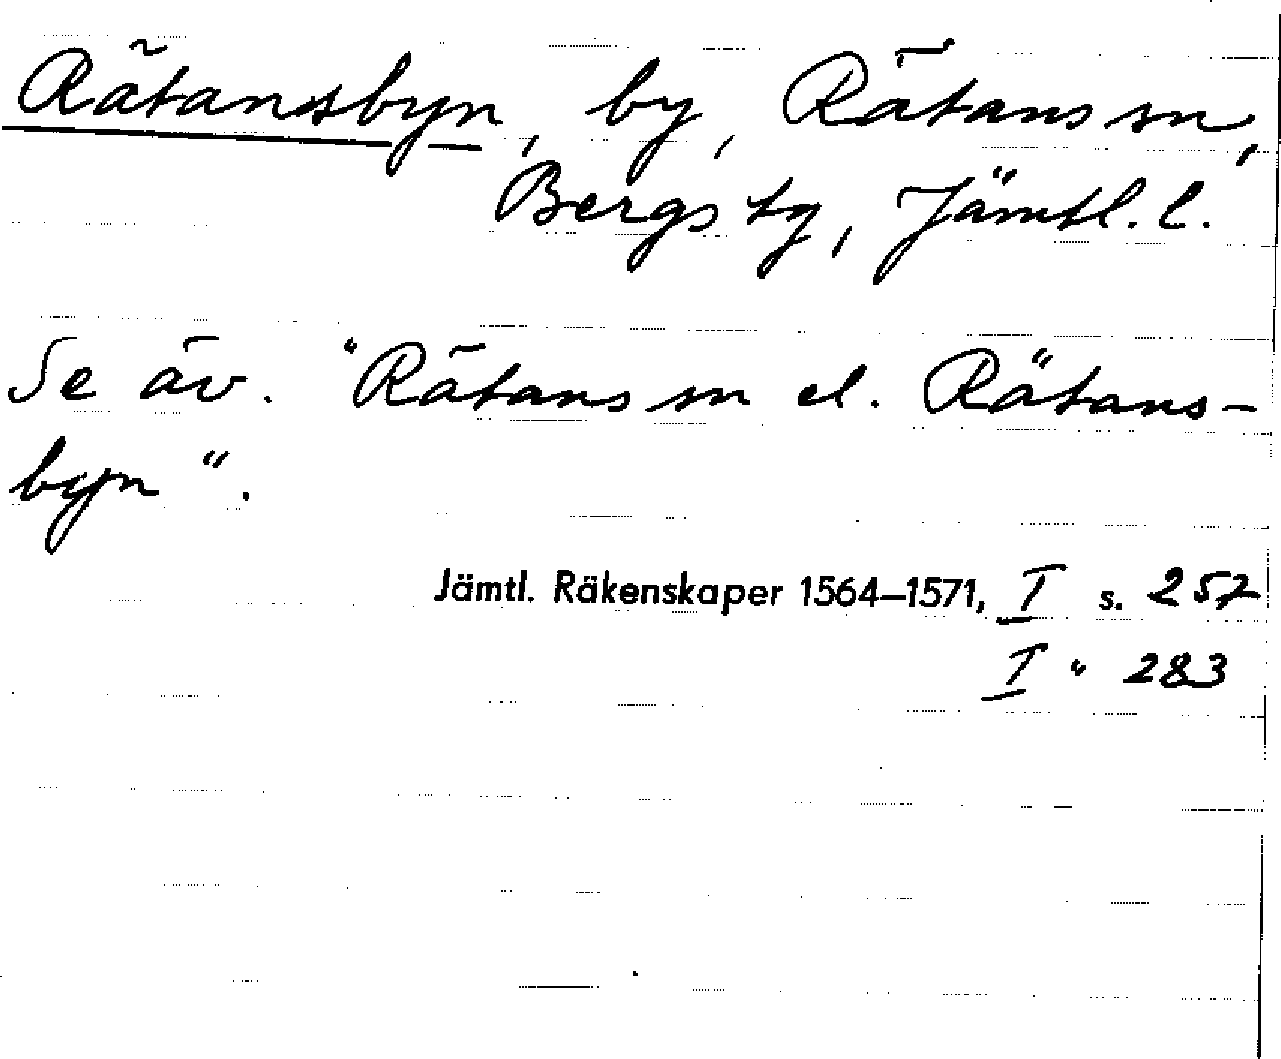 Rätansbyn, by, Rätans sn,
Bergs tg, Jämtl. l.
Se äv. "Rätans sn el. Rätans-
byn".
Jämtl. Räkenskaper 1564–1571, I s. 257
I " 283